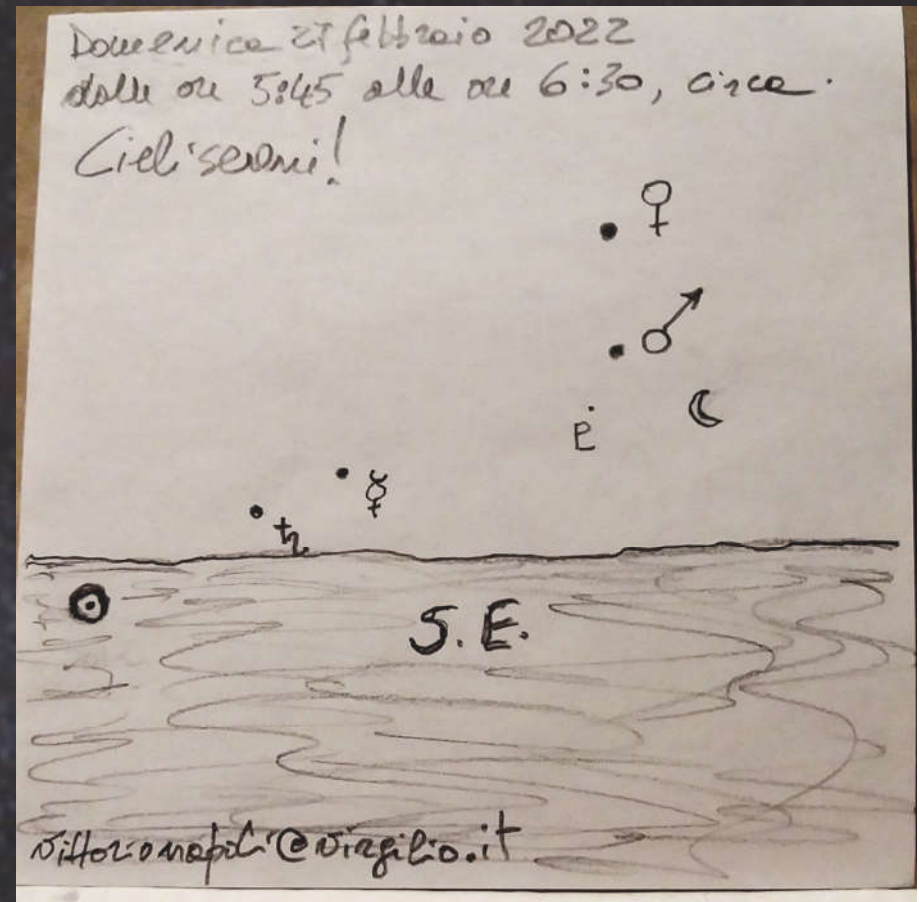 Domenica 27 febbraio 2022
dalle ore 5:45 alle ore 6:30, circa.
Cieli sereni!
♀
♂
☾
P
☿
♄
☉
S. E.
vittorionapoli@virgilio.it